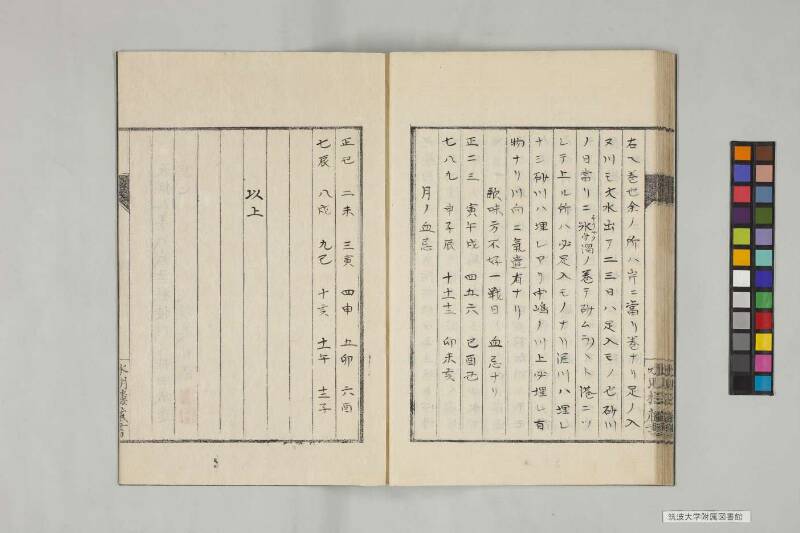 右ハ巻也余ノ所ハ岸ニ當リ巻ナリ足ノ入
又川モ大水出テ二三日ハ足入モノ也砂川
ノ日當リニ水ノ濁ノ巻テ砂ムラ〳〵ト湛ニツ
レテ上ル所ハ必足入モノナリ泥川ハ埋レ
ナシ砂川ハ埋レアリ中嶋ノ川上必埋レ有
物ナリ川向ニ氣遣有ナリ
敵味方不好一戦日 血忌ナリ
正二三 寅午戌 四五六 巳酉丑
七八九 申子辰 十十一十二 卯未亥
月ノ血忌
正巳 二未 三寅 四申 五卯 六酉
七辰 八戌 九巳 十亥 十一午 十二子
以上
筑波大学附属図書館